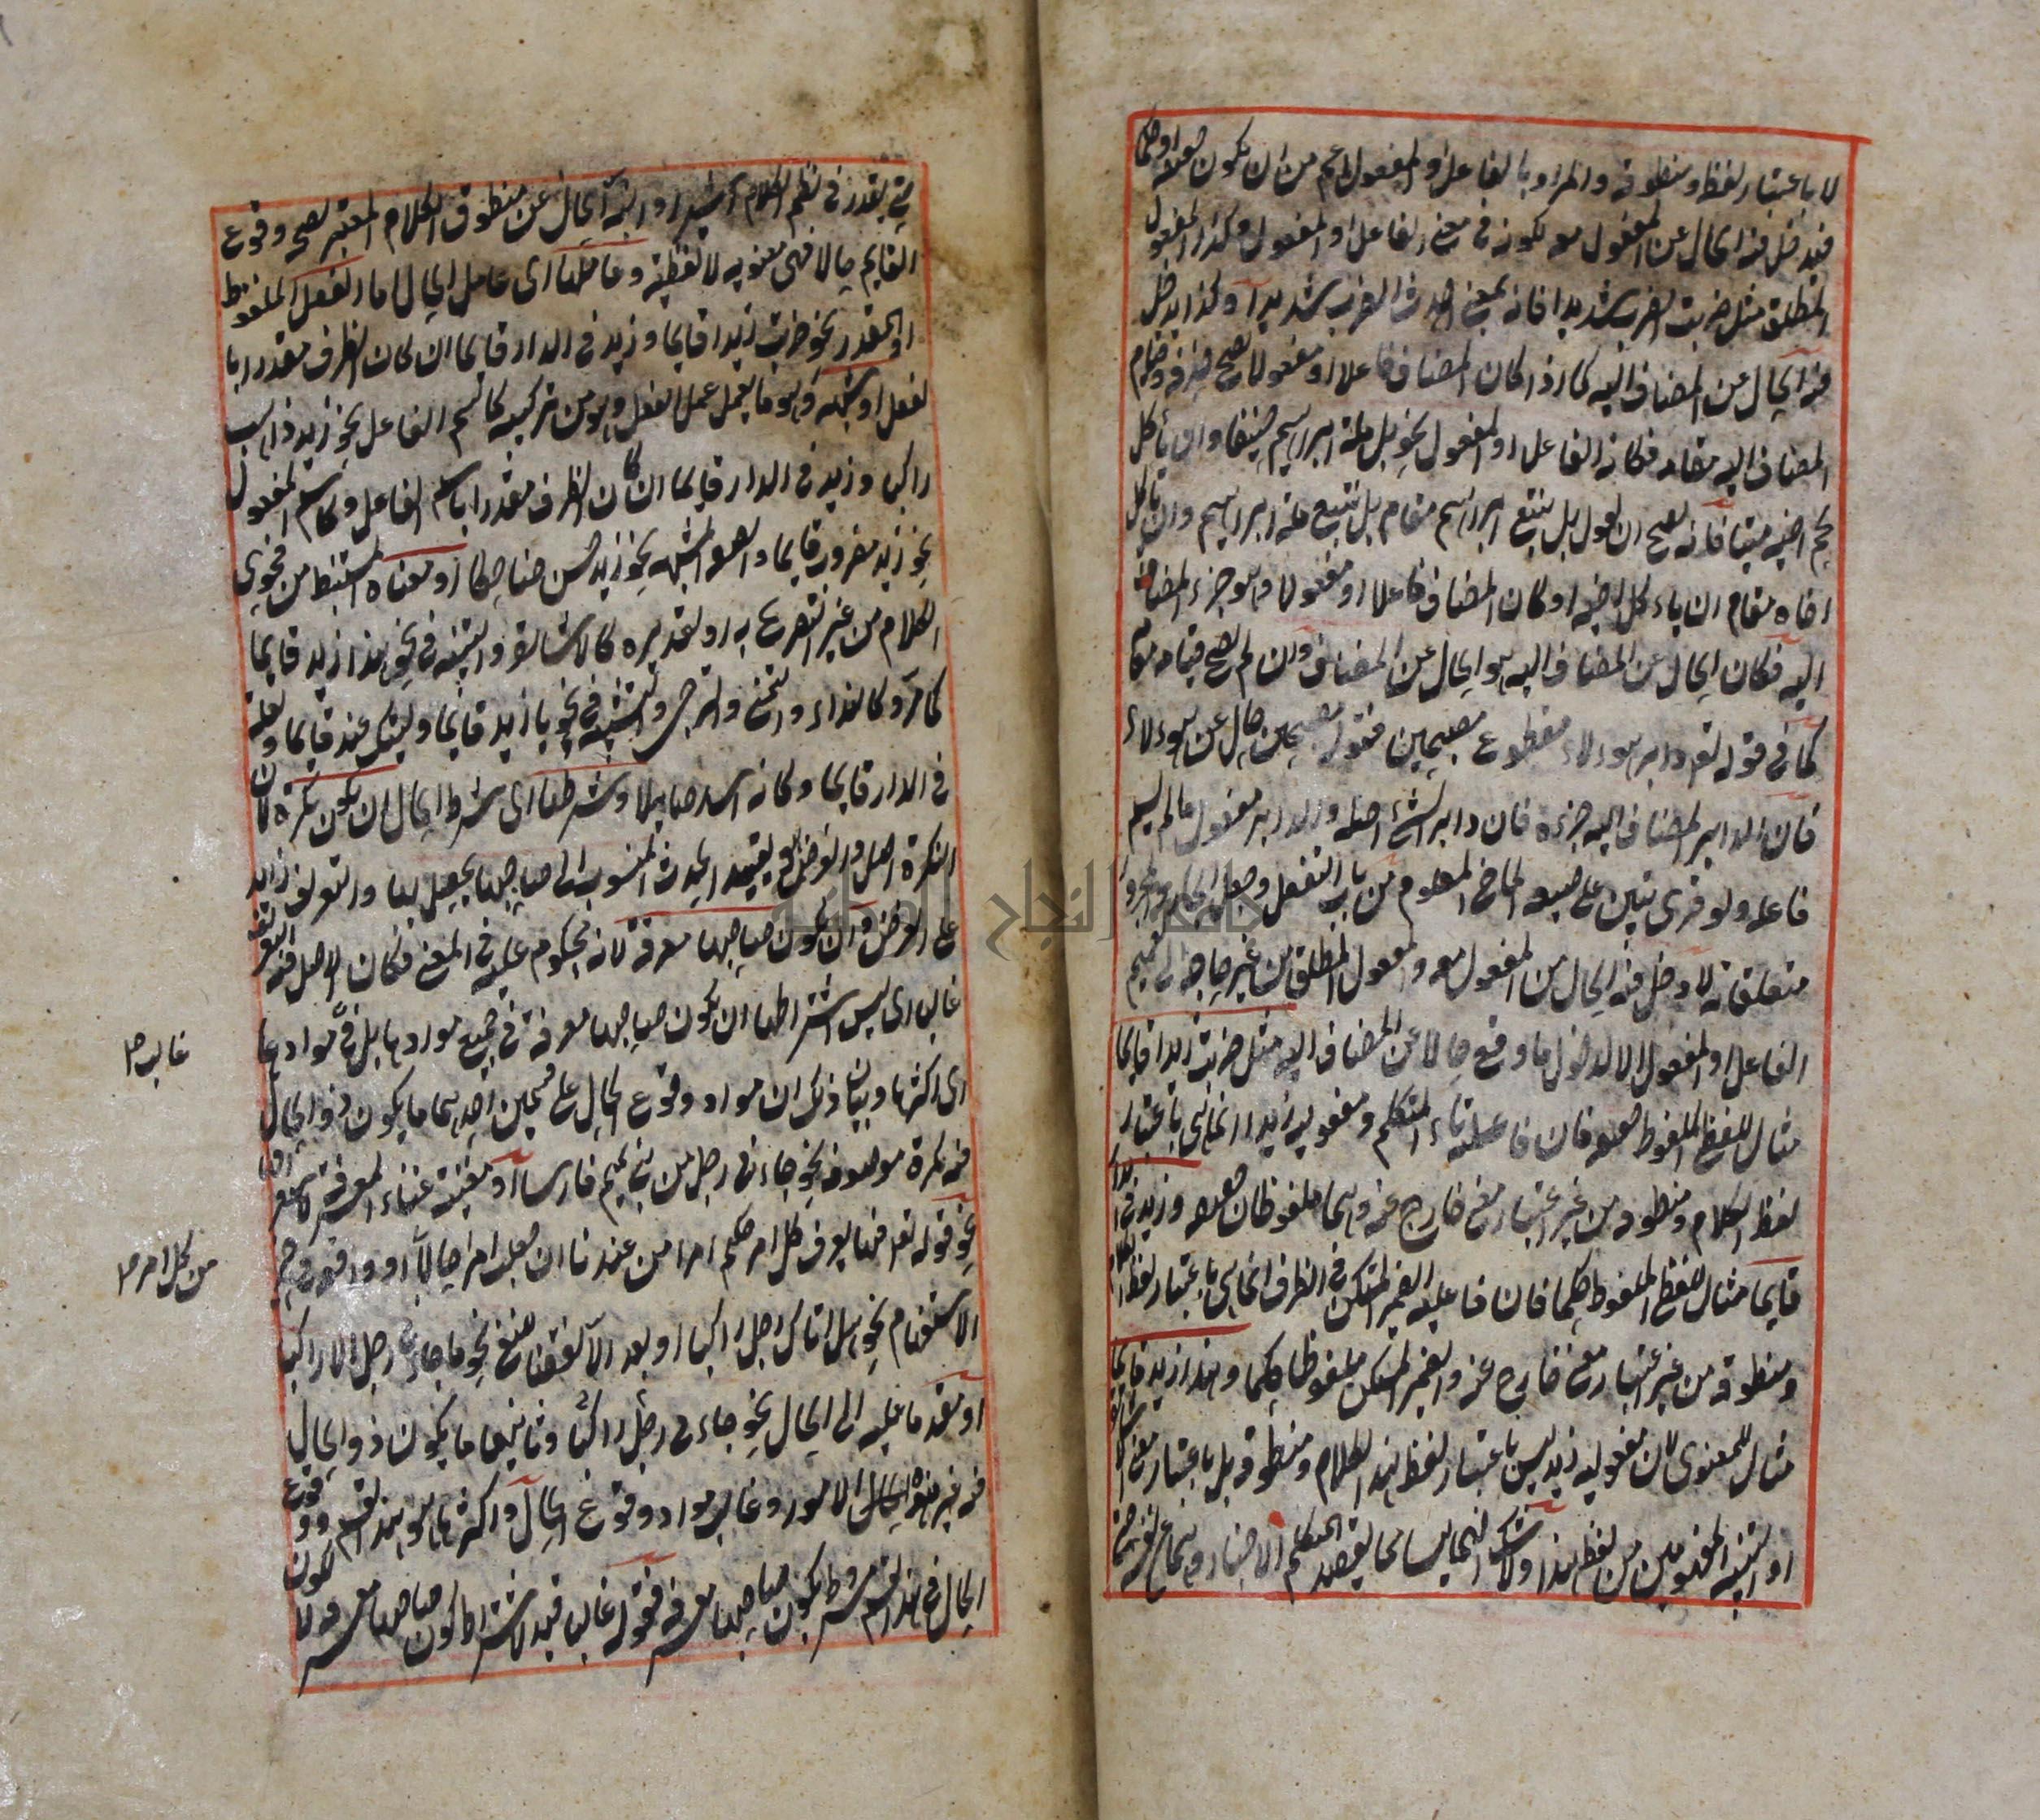 لا باعتبار لفظه ومنطوقه والمراد بالفاعل او المفعول اعم من ان يكون حقيقة او حكما
فيدخل فيه الحال عن المفعول معه لكونه في معنى الفاعل او المفعول وكذا المفعول
المطلق مثل ضربت الضرب شديدا فانه بمعنى احدث الضرب شديدا وكذا يدخل
فيه الحال عن المضاف اليه كما اذا كان المضاف فاعلا او مفعولا يصح حذفه وقيام
المضاف اليه مقامه فكانه الفاعل او المفعول نحو بل ملة ابراهيم حنيفا وان يأكل
لحم اخيه ميتا فانه يصح ان يقول بل نتبع ابراهيم مقام بل نتبع ملة ابراهيم وان ياكل
اخاه مقام ان ياكل لحم اخيه او كان المضاف فاعلا او مفعولا وهو جزء المضاف
اليه فكان الحال عن المضاف اليه هو الحال عن المضاف وان لم يصح قيامه مقامه
كما في قوله تعه دابر هؤلاء مقطوع مصبحين فقوله مصبحين حال عن هؤلاء
فان الدابر المضاف اليه جزءه فان دابر الشئ اصله والدابر مفعول ما لم يسم
فاعله ولو قرئ تبين على صيغه الماضي المعلوم من باب التفعل وجعل الجار والمجرور
متعلقا به لا دخل فيه الحال من المفعول معه والمفعول المطلق من غير حاجة الى تعميم
الفاعل او المفعول الا لدخول ما وقع حالا عن المضاف اليه مثل ضربت زيدا قايما
مثال للفظ الملفوظ حقيقة فان فاعلية تاء المتكلم ومفعوليه زيدا انما هي باعتبار
لفظ الكلام ومنطوقه من غير اعتبار معنى خارج عنه وهما ملفوظان حقيقة وزيد في الدار
قايما مثال للفظ الملفوظ حكما فان فاعلية الضمير المستكن في الظرف انما هي باعتبار لفظ الكلام
ومنطوقه من غير اعتبار معنى خارج عنه والضمير المستكن ملفوظ حكما وهذا زيد قايما
مثال للمعنوي لان مفعوليه زيد ليس باعتبار لفظ هذا الكلام ومنطوقه بل باعتبار معنى الاشارة
او التنبيه المفهومين من لفظ هذا ولا شك انهما ليسا مما يقصد المتكلم الاخبار بهما عن نفسه حتى
يقدر في نظم الكلام اشير او انبه الحال عن منطوق الكلام المعتبر لصحة وقوع
القايم حالا فهي معنويه لا لفظية وعاملها اى عامل الحال اما الفعل الملفوظ
او المقدر نحو ضربت زيدا قايما وزيد في الدار قايما ان كان الظرف مقدرا با
لفعل او شبهه وهو ما يعمل عمل الفعل وهو من تركيبه كاسم الفاعل نحو زيد ذاهب
راكبا وزيد في الدار قايما ان كان الظرف مقدرا باسم الفاعل وكاسم المفعول
نحو زيد مضروب قايما والصفة المشبهه نحو زيد حسن ضاحكا او معناه المستنبط من فحوى
الكلام من غير التصريح به او تقديره كالاشارة والتنبيه في نحو هذا زيد قايما
كما مر وكالنداء والتمني والترجي والتشبيه في نحو يا زيد قايما وليتك عندنا قايما ولعله
في الدار قايما وكانه اسد صايلا وشرطها اى شرط الحال ان يكون نكرة لان
النكرة اصل والغرض هو تقييد الحدث المنسوب الى صاحبها يحصل بها والتعريف زايد
على الغرض وان يكون صاحبها معرفة لانه محكوم عليه في المعنى فكان الاصل فيه التعريف
غالبا اى ليس اشتراطها ان يكون صاحبها معرفة في جميع موادها بل في موادها
اى اكثرها وبيان ذلك ان مواد وقوع الحال على قسمين احدهما ما يكون ذو الحال
فيه نكرة موصوفه نحو جاءني رجل من بني تميم فارسا او مغنية غناء المعرفة لاستغراقها
نحو قوله تعه فيها يفرق كل امر حكيم امرا من عندنا ان جعل امرا حالا او واقعة في حيز
الاستفهام نحو هل اتاك رجل راكبا او بعد الا نقضا للنفي نحو ما جاءني رجل الا راكبا
او مقدما عليه الحال نحو جاءني راكبا رجل وثانيهما ما يكون ذو الحال
فيه غير هذه الامور وغالب مواد وقوع الحال واكثرها هو هذا القسم ووقوع
الحال في هذا القسم مشروط بكون صاحبها معرفة فقوله غالبا قيد لاشتراط كون صاحبها معرفة لا لكون
غالب صح
من كل امر صح
جامعة النجاح الوطنية